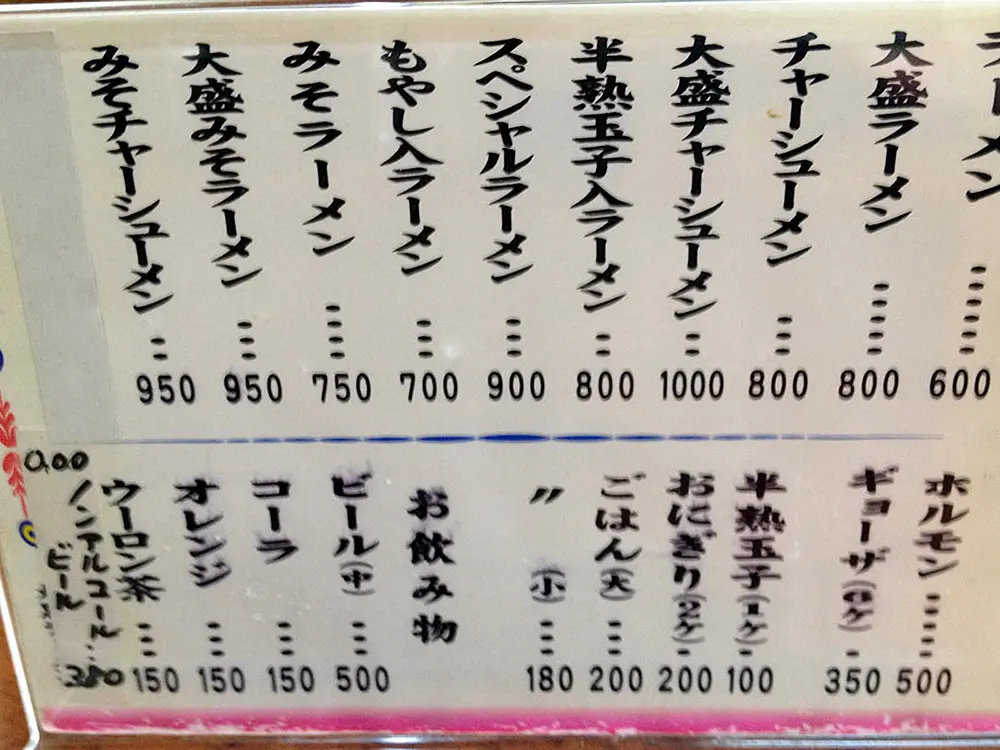 ラーメン 600
大盛ラーメン 800
チャーシューメン 800
大盛チャーシューメン 1000
半熟玉子入ラーメン 800
スペシャルラーメン 900
もやし入ラーメン 700
みそラーメン 750
大盛みそラーメン 950
みそチャーシューメン 950
ホルモン 500
ギョーザ(6ヶ) 350
半熟玉子(1ヶ) 100
おにぎり(2ヶ) 200
ごはん(大) 200
〃 (小) 180
お飲み物
ビール(中) 500
コーラ 150
オレンジ 150
ウーロン茶 150
0.00
ノンアルコール
ビール 380